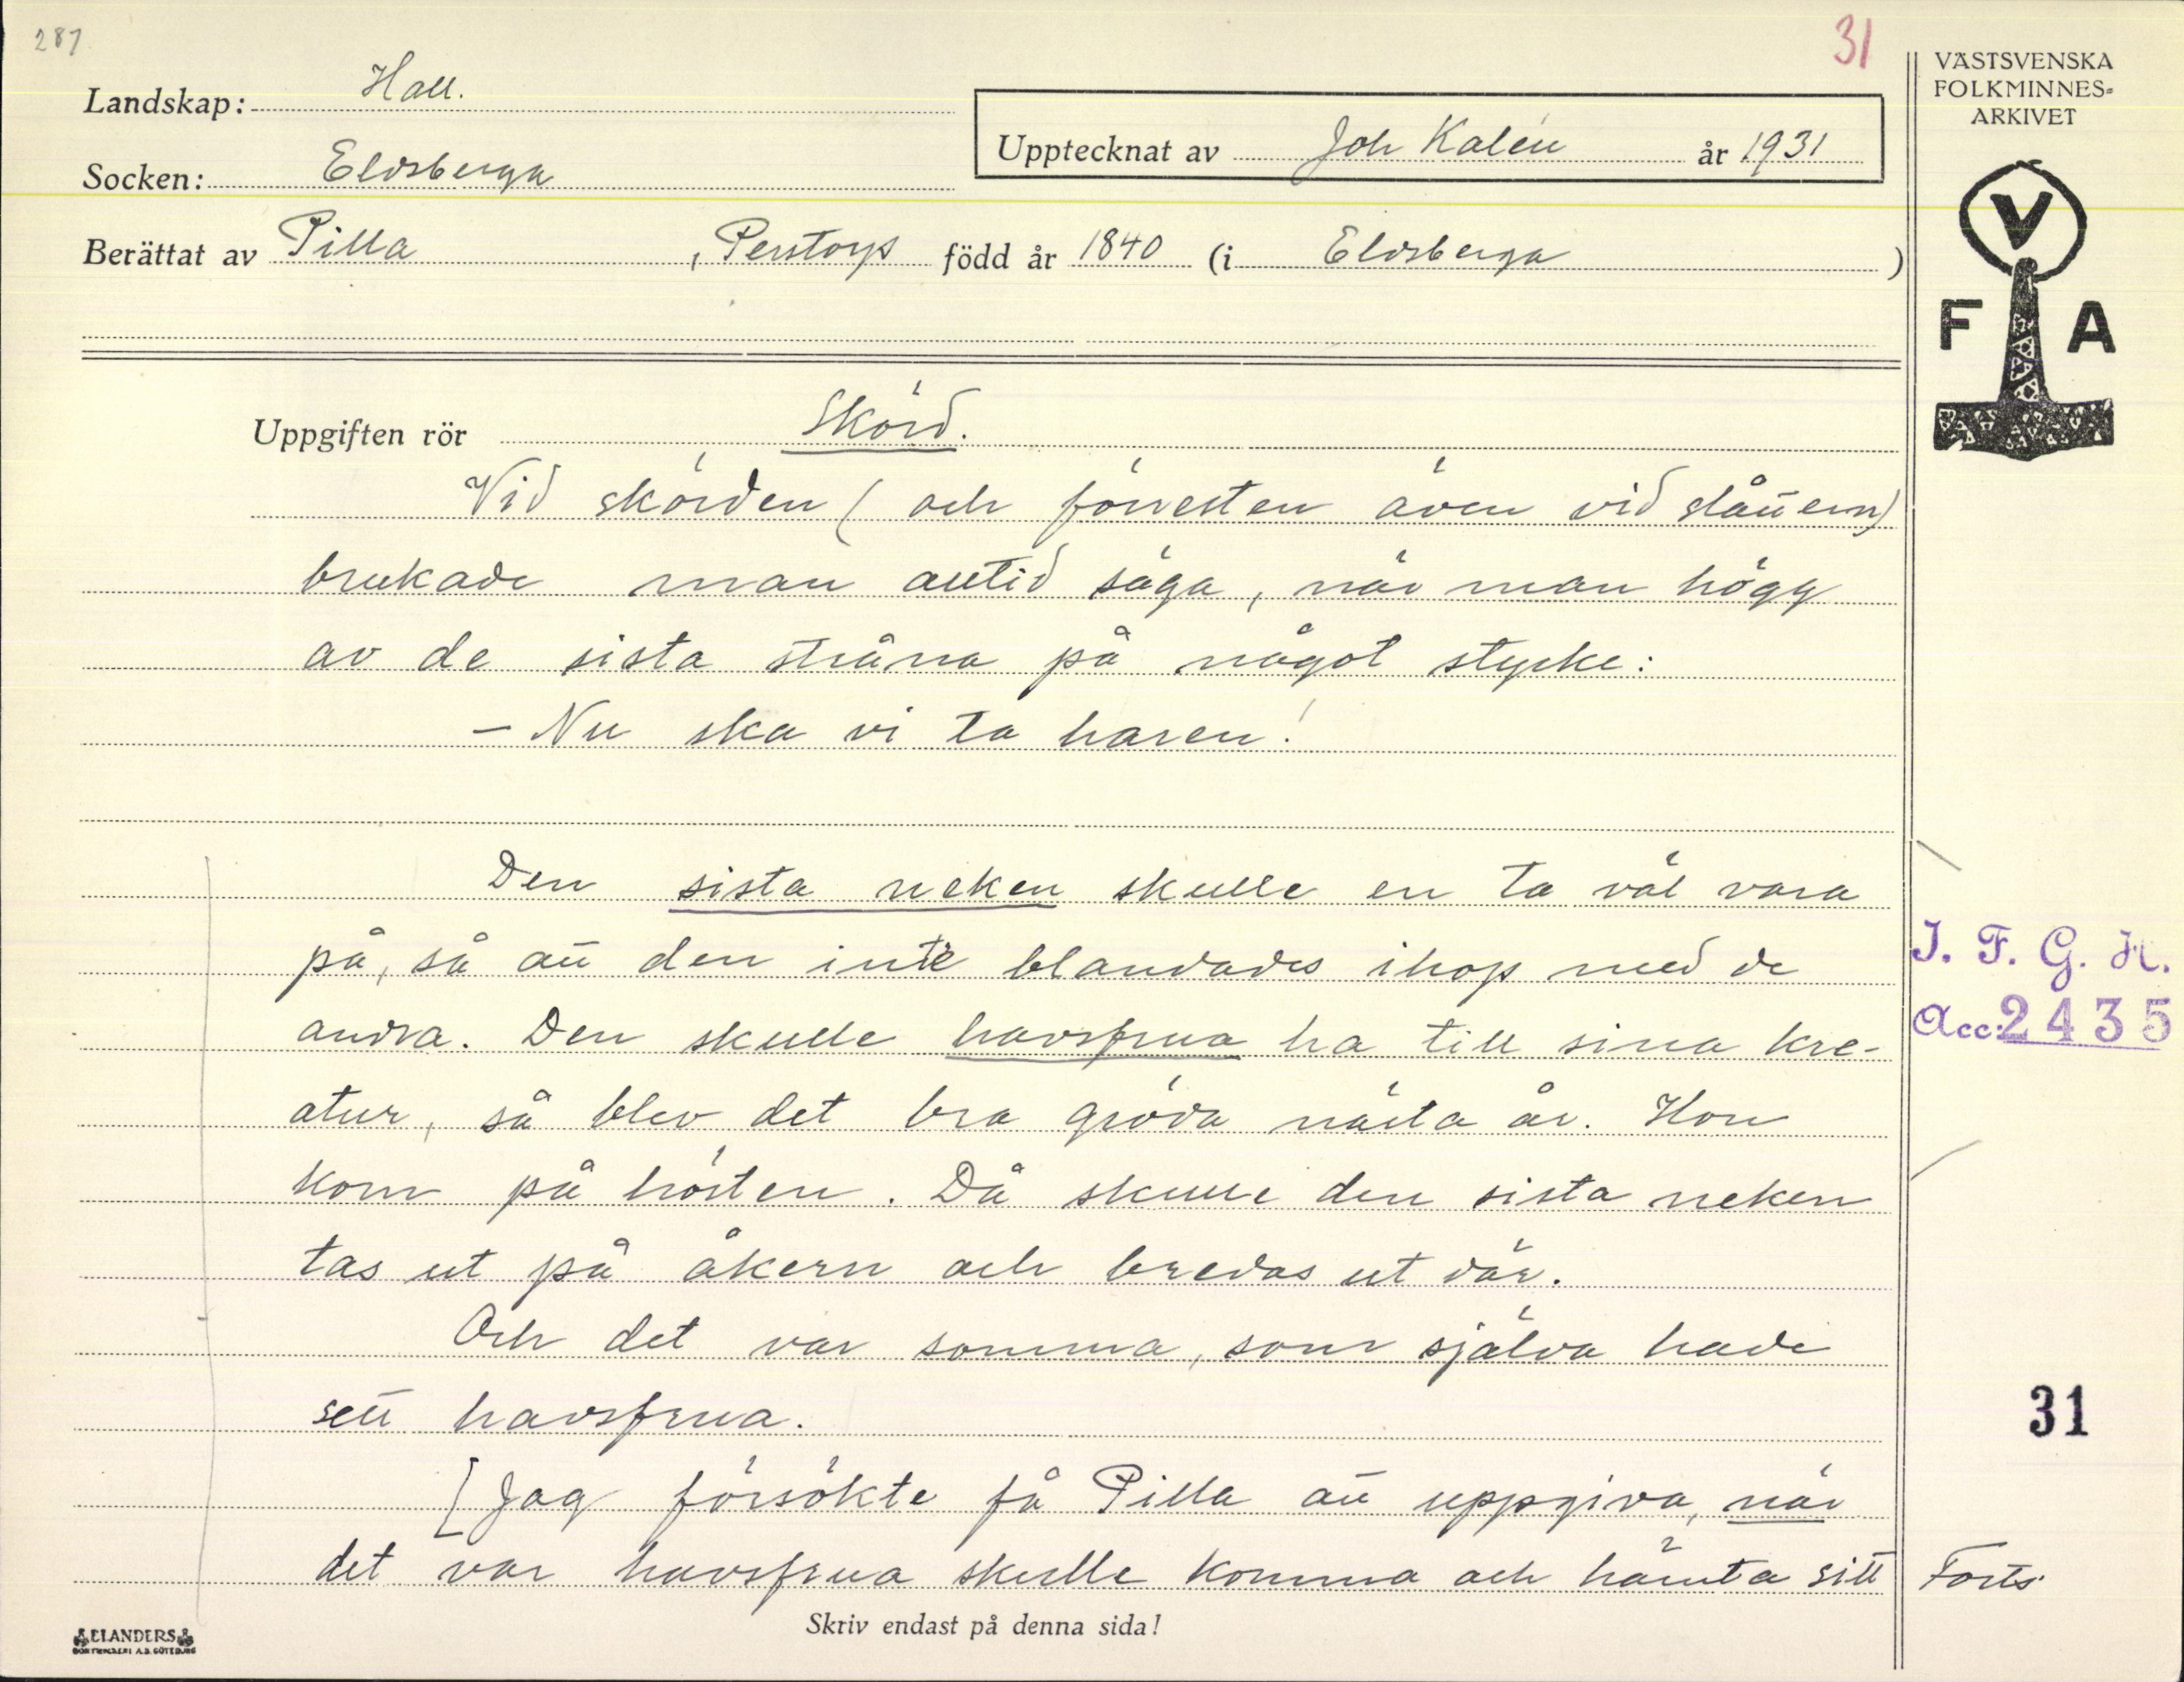 287
31
Landskap: Hall.
Upptecknat av Joh Kalén år 1931
Socken: Eldsberga
Berättat av Pilla, Perstorp född år 1840 (i Eldsberga)
VÄSTSVENSKA
FOLKMINNES=
ARKIVET
V
F A
Uppgiften rör Skörd.
Vid skörden (och förresten även vid slåttern)
brukade man alltid säga, när man högg
av de sista stråna på något stycke:
– Nu ska vi ta haren!
Den sista neken skulle en ta väl vara
på, så att den inte blandades ihop med de
andra. Den skulle havsfrua ha till sina kre-
atur, så blev det bra gröda nästa år. Hon
kom på hösten. Då skulle den sista neken
tas ut på åkern och bredas ut där.
Och det var somma, som själva hade
sett havsfrua.
[Jag försökte få Pilla att uppgiva, när
det var havsfrua skulle komma och hämta sitt
I. F. G. H.
Acc: 2435
31
Forts.
Skriv endast på denna sida!
ELANDERS
BOKTRYCKERI A.B. GÖTEBORG